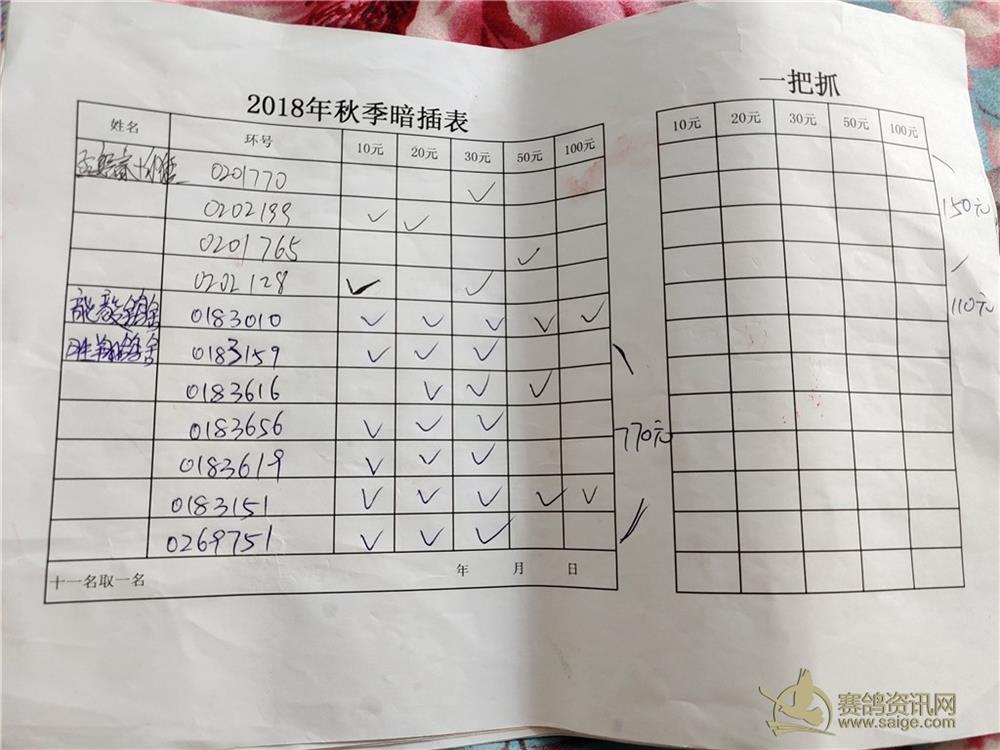 2018年秋季暗插表
姓名 环号 10元 20元 30元 50元 100元
0201770 ✓
0202199 ✓ ✓
0201765 ✓
0202128 ✓ ✓
0183010 ✓ ✓ ✓ ✓ ✓
0183159 ✓ ✓ ✓
0183616 ✓ ✓ ✓
0183656 ✓ ✓ ✓
0183619 ✓ ✓ ✓
0183151 ✓ ✓ ✓ ✓ ✓
0269751 ✓ ✓ ✓
十一名取一名 年 月 日
770元
一把抓
10元 20元 30元 50元 100元
150元
110元
赛鸽资讯网
www.saige.com